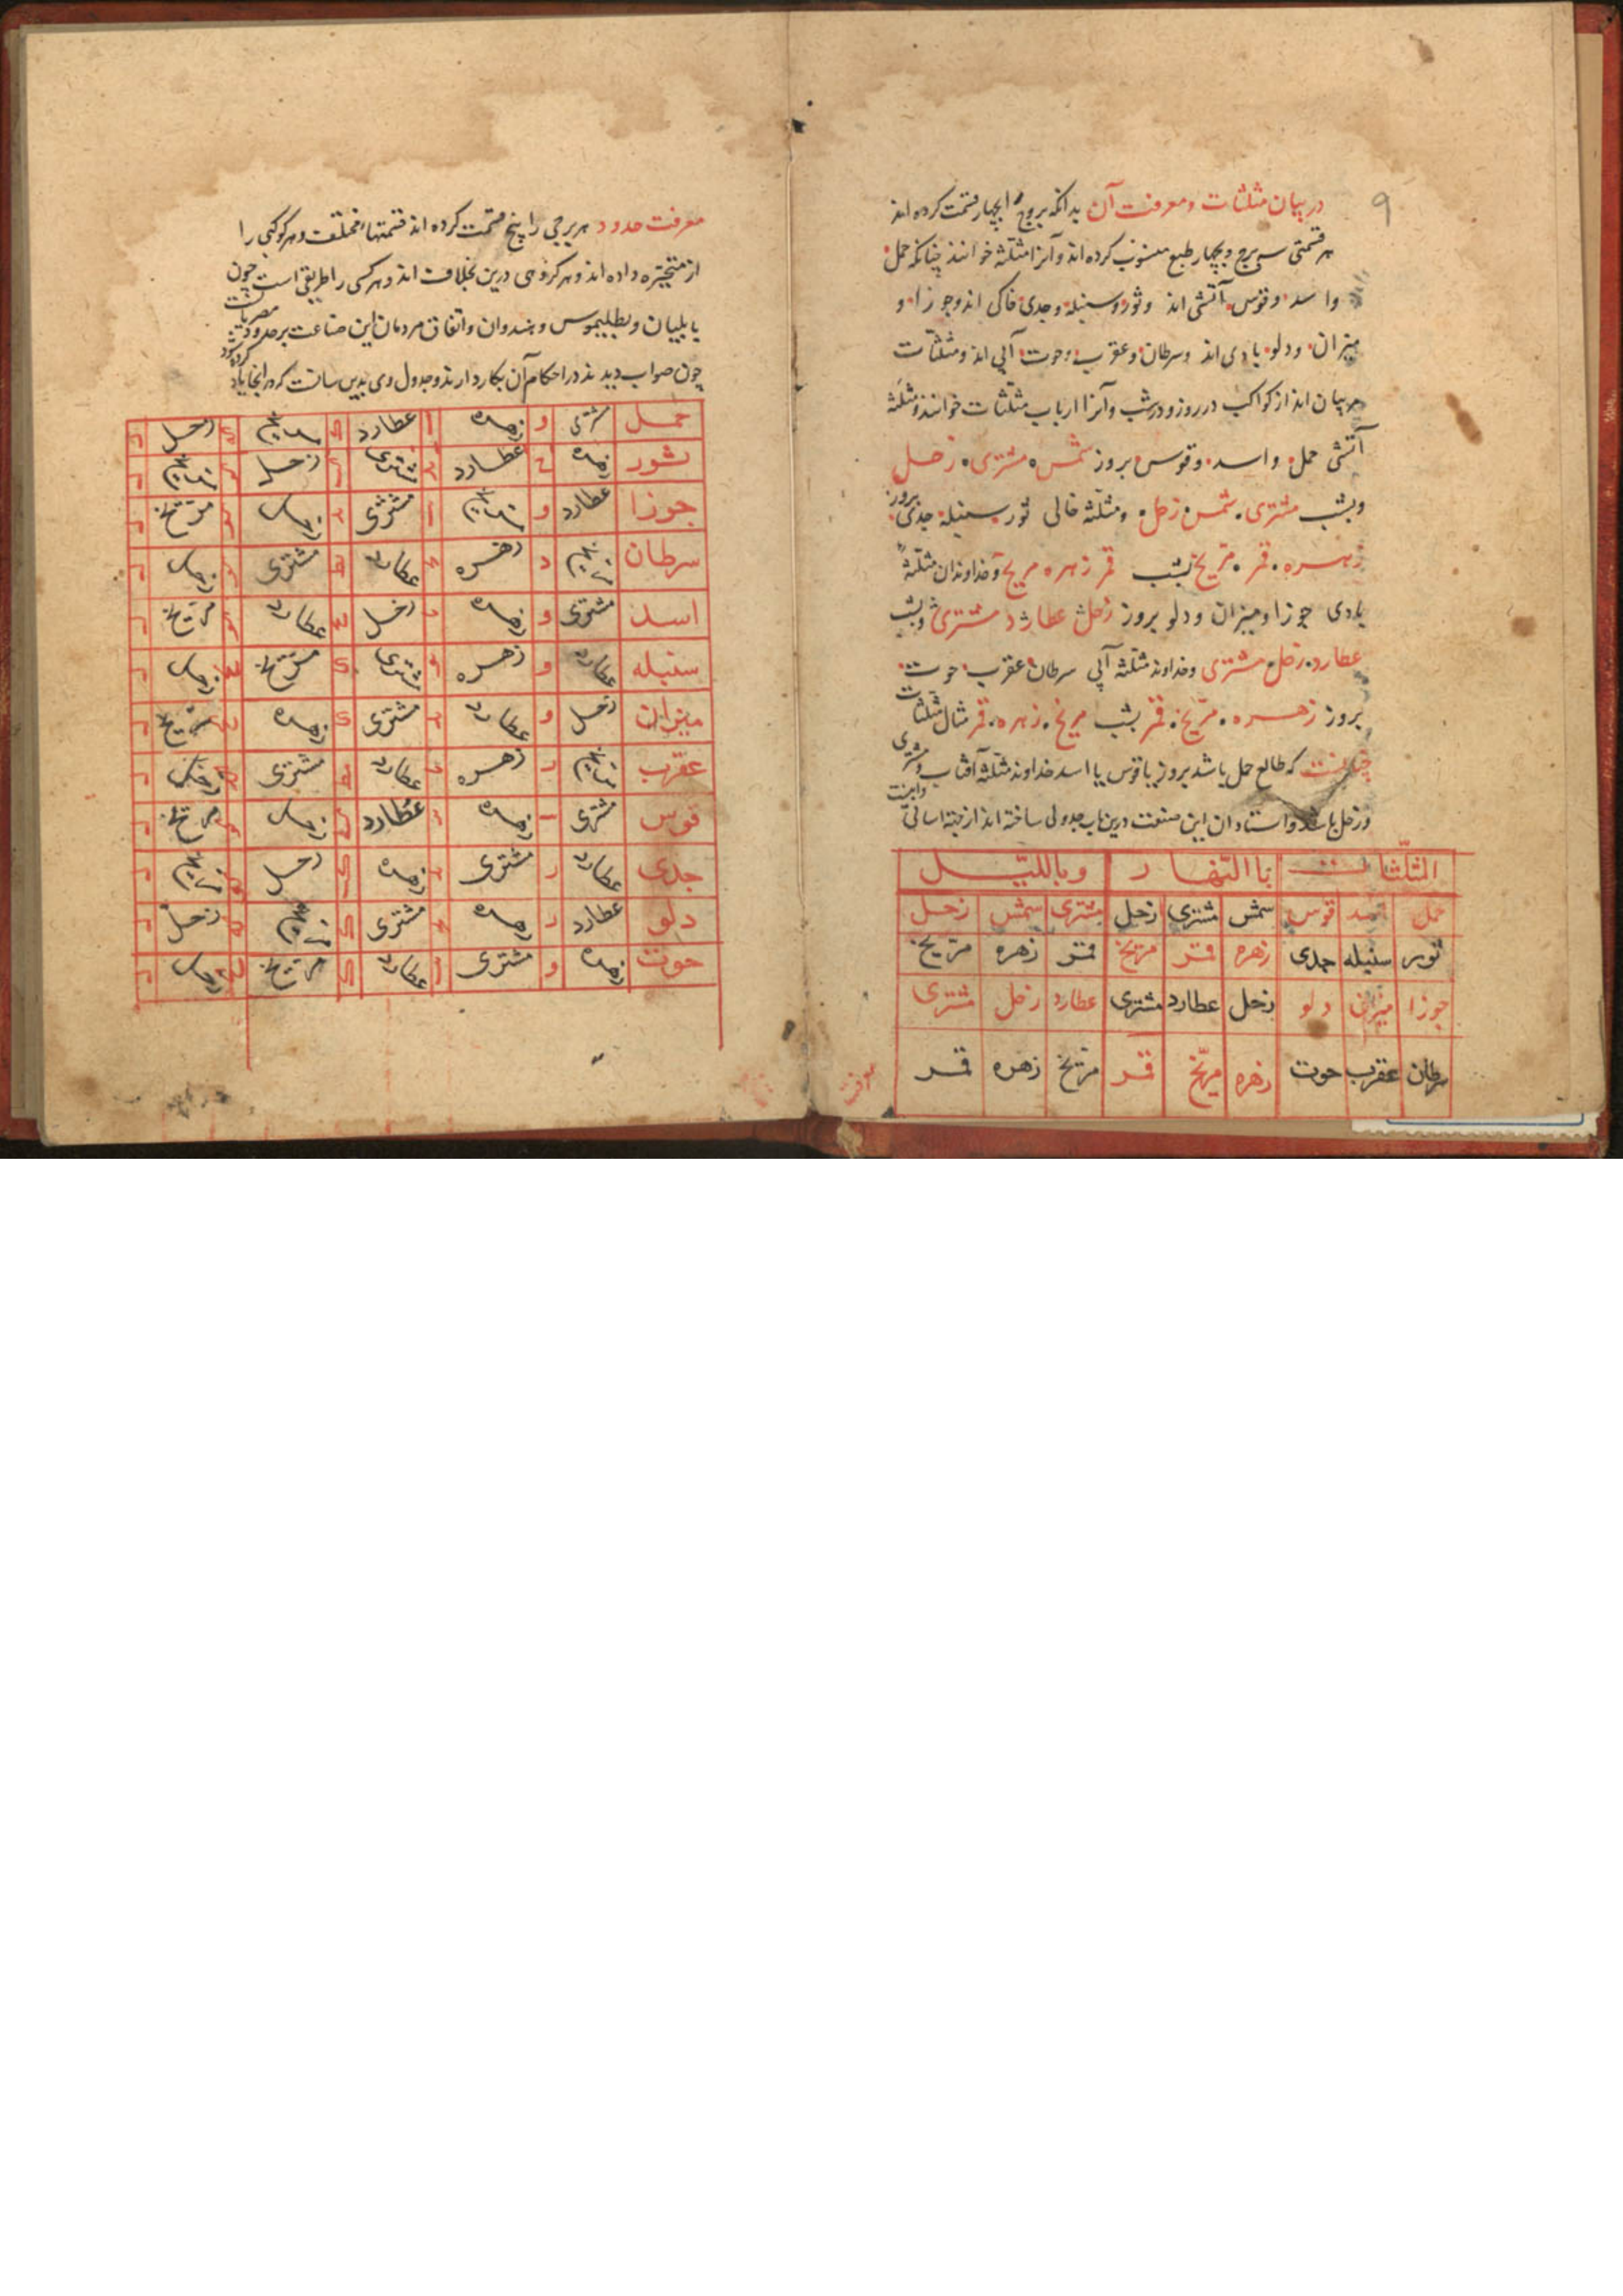 ۹
در بیان مثلثات و معرفت آن بدانکه بروج را بچهار قسمت کرده اند
هر قسمتی سه برج و بچهار طبع منسوب کرده اند و آنرا مثلثه خوانند چنانکه حمل
و اسد و قوس آتشی اند و ثور و سنبله و جدی خاکی اند و جوزا و
میزان و دلو بادی اند و سرطان و عقرب و حوت آبی اند و مثلثات
اند از کواکب در روز و در شب و آنرا ارباب مثلثات خوانند و مثلثه
آتشی حمل و اسد و قوس بروز شمس مشتری زحل
و بشب مشتری شمس زحل و مثلثه خاکی ثور سنبله جدی بروز
زهره قمر مریخ بشب قمر زهره مریخ و خداوندان مثلثه
بادی جوزا و میزان و دلو بروز زحل عطارد مشتری و بشب
عطارد زحل مشتری و خداوند مثلثه آبی سرطان عقرب حوت
بروز زهره مریخ قمر بشب مریخ زهره قمر مثال مثلثات
چنانست که طالع حمل باشد بروز یا قوس یا اسد خداوند مثلثه آفتاب و مشتری
و زحل باشد و استادان این صنعت درین باب جدولی ساخته اند از جهة اسانی و اینست
المثلثات باالنهار وبااللیل
حمل اسد قوس شمس مشتری زحل مشتری شمس زحل
ثور سنبله جدی زهره قمر مریخ قمر زهره مریخ
جوزا میزان دلو زحل عطارد مشتری عطارد زحل مشتری
سرطان عقرب حوت زهره مریخ قمر مریخ زهره قمر
معرفت
معرفت حدود هر برجی را پنج قسمت کرده اند قسمتها مختلف و هر کوکبی را
از متحیره داده اند و هر گروهی درین بخلافت اند و هر کسی را طریقی است چون
بابلیان و بطلیموس و هندوان و اتفاق مردمان این صناعت بر حدود مصریانست
چون صواب دیدند در احکام آن بکار دارند و جدول وی بدین سانست که در اینجا یاد کرده شود
حمل مشتری و زهره عطارد مریخ زحل
ثور زهره عطارد مشتری زحل مریخ
جوزا عطارد و مریخ مشتری زحل مریخ
سرطان مریخ زهره عطارد مشتری زحل
اسد مشتری و زهره زحل عطارد مریخ
سنبله عطارد و زهره مشتری مریخ زحل
میزان زحل و عطارد مشتری زهره مریخ
عقرب مریخ زهره عطارد مشتری زحل
قوس مشتری زهره عطارد زحل مریخ
جدی عطارد مشتری زهره زحل مریخ
دلو عطارد زهره مشتری مریخ زحل
حوت زهره و مشتری عطارد مریخ زحل